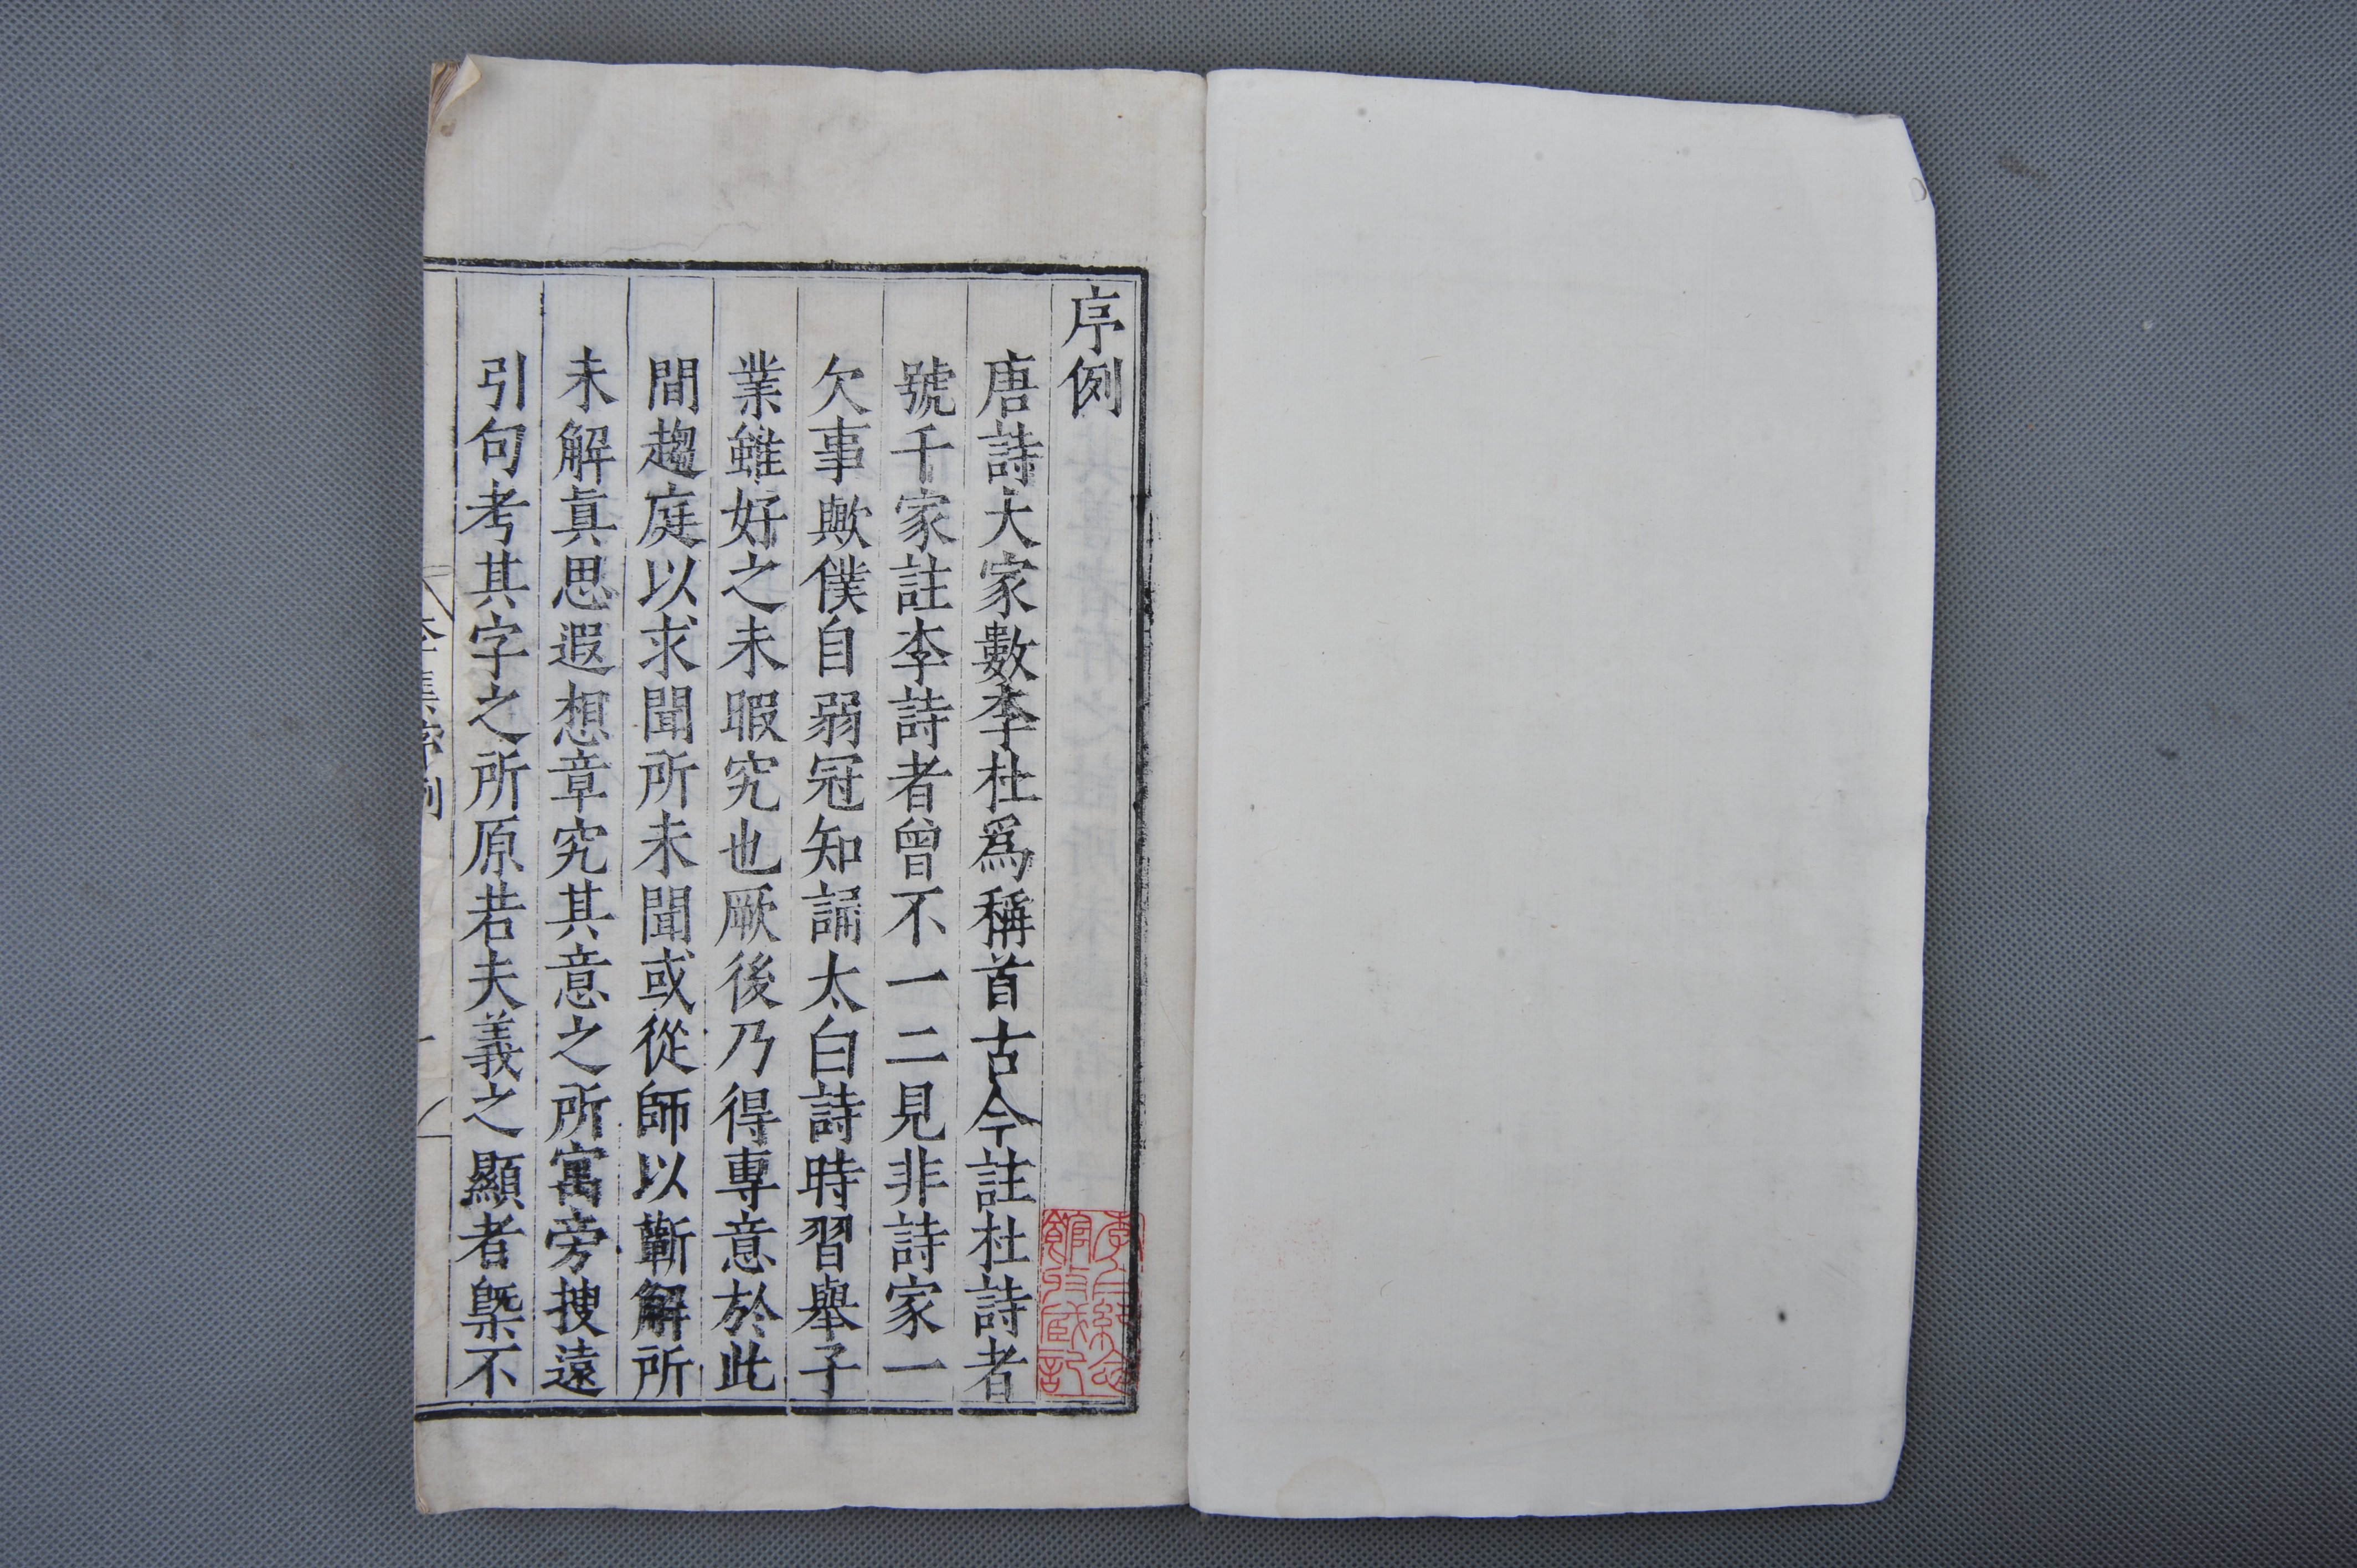 序例
唐詩大家數李杜爲稱首古今註杜詩者
號千家註李詩者曾不一二見非詩家一
欠事歟僕自弱冠知誦太白詩時習舉子
業雖好之未暇究也厥後乃得專意於此
間趨庭以求聞所未聞或從師以蘄解所
未解眞思遐想章究其意之所寓旁搜遠
引句考其字之所原若夫義之顯者槩不
李集序例